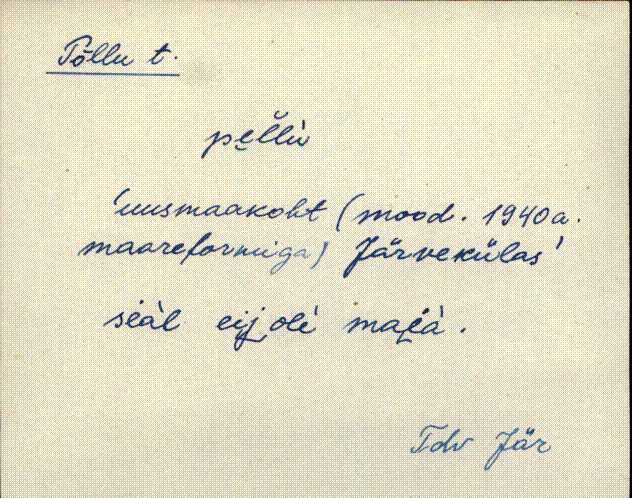 Põllu t.
pe̮l̆lù
'uusmaakoht (mood. 1940a.
maareformiga) Järvekülas'
sèàl eij olè majà.
Tdv Jär